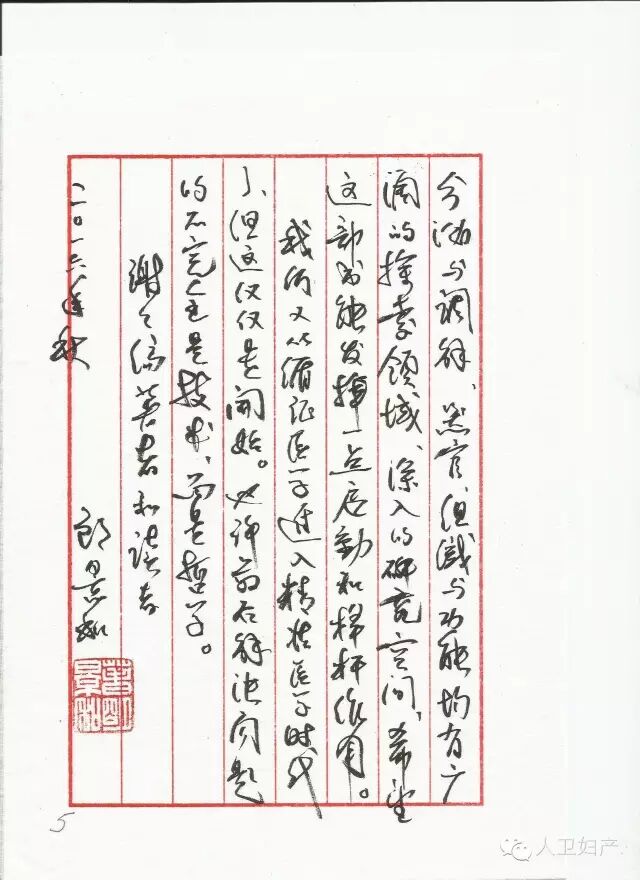 分泌与调节、器官、组织与功能均有广
阔的探索领域、深入的研究空间、希望
这部书能发挥一点启动和杠杆作用。
我们又从循证医学进入精准医学时代
了、但这仅仅是开始。也许前后解决问题
的不完全是技术、而是哲学。
谢谢编著者和读者
二〇一六年秋
郎景和
5
人卫妇产